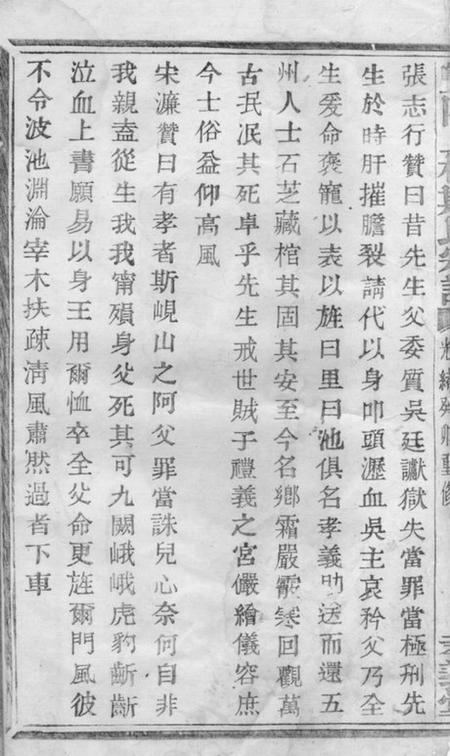 張志行贊曰昔先生父委質吳廷讞獄失當罪當極刑先
生於時肝摧膽裂請代以身叩頭瀝血吳主哀矜父乃全
生爰命褒寵以表以旌曰里曰池俱名孝義助送而還五
州人士石芝藏棺其固其安至今名鄉霜嚴霰回觀萬
古泯泯其死卓乎先生戒世賊子禮義之宮儼繪儀容庶
今士俗益仰高風
宋濂贊曰有孝者斯峴山之阿父罪當誅兒心奈何自非
我親盍從生我我甯殞身父死其可九關峨峨虎豹齗齗
泣血上書願易以身王用爾恤卒全父命更旌爾門風彼
不令波池淵淪宰木扶疎清風肅然過者下車